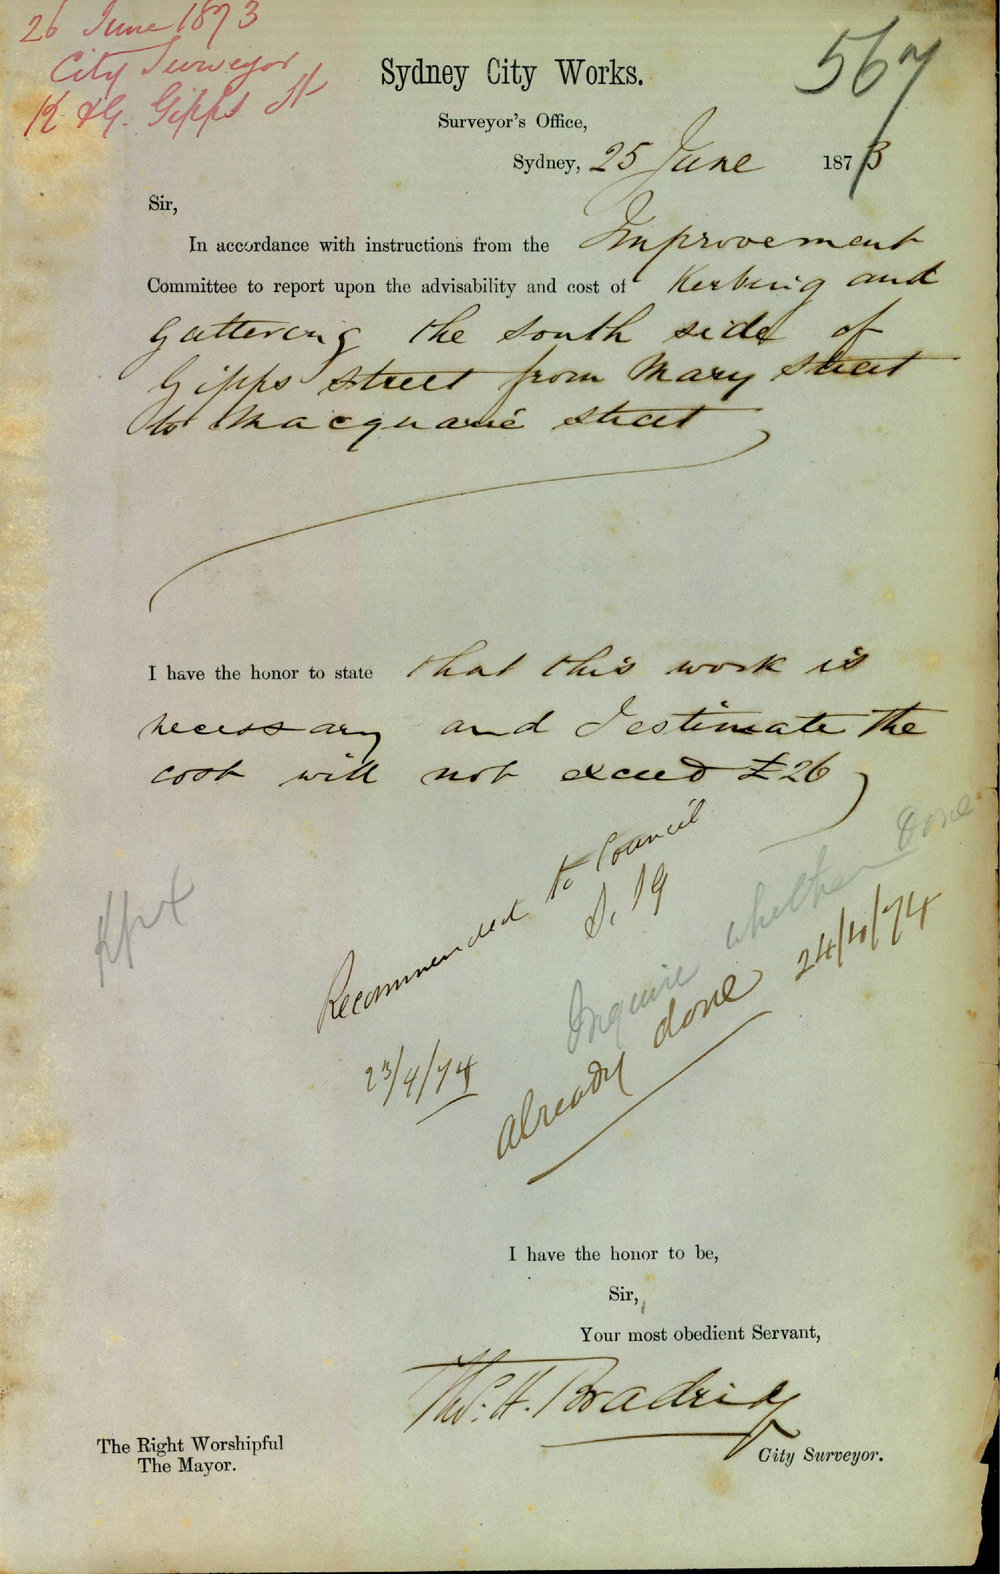 26 June 1873
City Surveyor
K & G. Gipps St
567
Sydney City Works.
Surveyor's Office,
Sydney, 25 June 1873
Sir,
In accordance with instructions from the Improvement
Committee to report upon the advisability and cost of Kerbing and
Guttering the south side of
Gipps street from Mary street
to Macquarie street
I have the honor to state that this work is
necessary and I estimate the
cost will not exceed £26
Recommended to Council
23/4/74
Inquire whether done
already done 24/4/74
I have the honor to be,
Sir,
Your most obedient Servant,
Thos. H. Bradridg
City Surveyor.
The Right Worshipful
The Mayor.